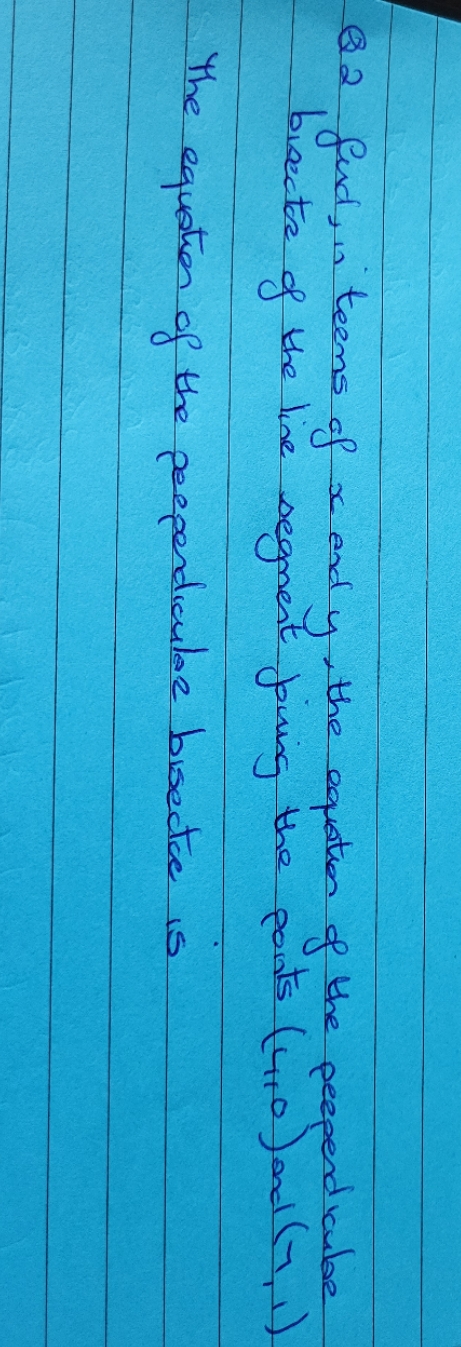 Q2 find, in terms of x and y, the equation of the perpendicular
bisector of the line segment joining the points (4,0) and (7,1)
The equation of the perpendicular bisector is